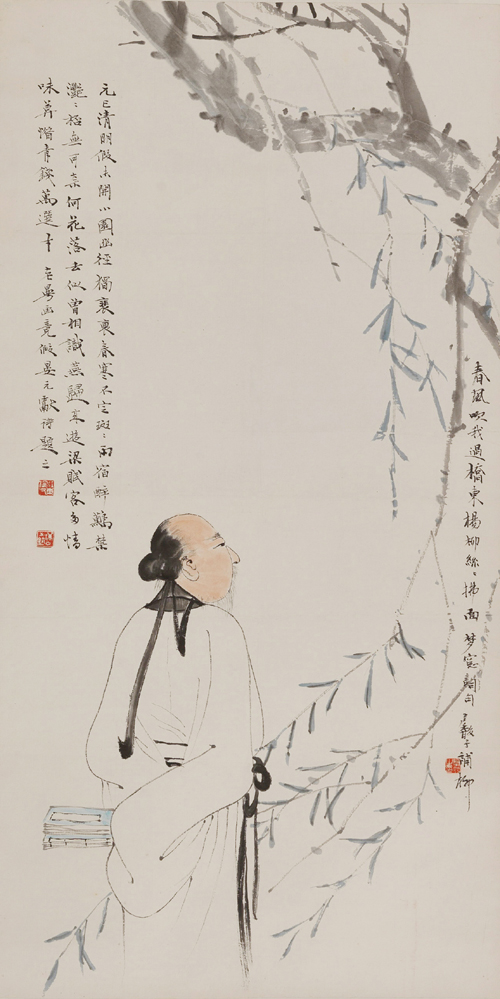 元巳清明假未開小園幽徑獨春寒不定斑〻雨宿醉難禁
灩〻杯無可奈何花落去似曾相識燕歸來遊梁賦客多情
味莫惜青錢萬選才 假晏元獻詩題之
春風吹我過橋東楊柳絲〻拂面 夢窗詞句 補柳